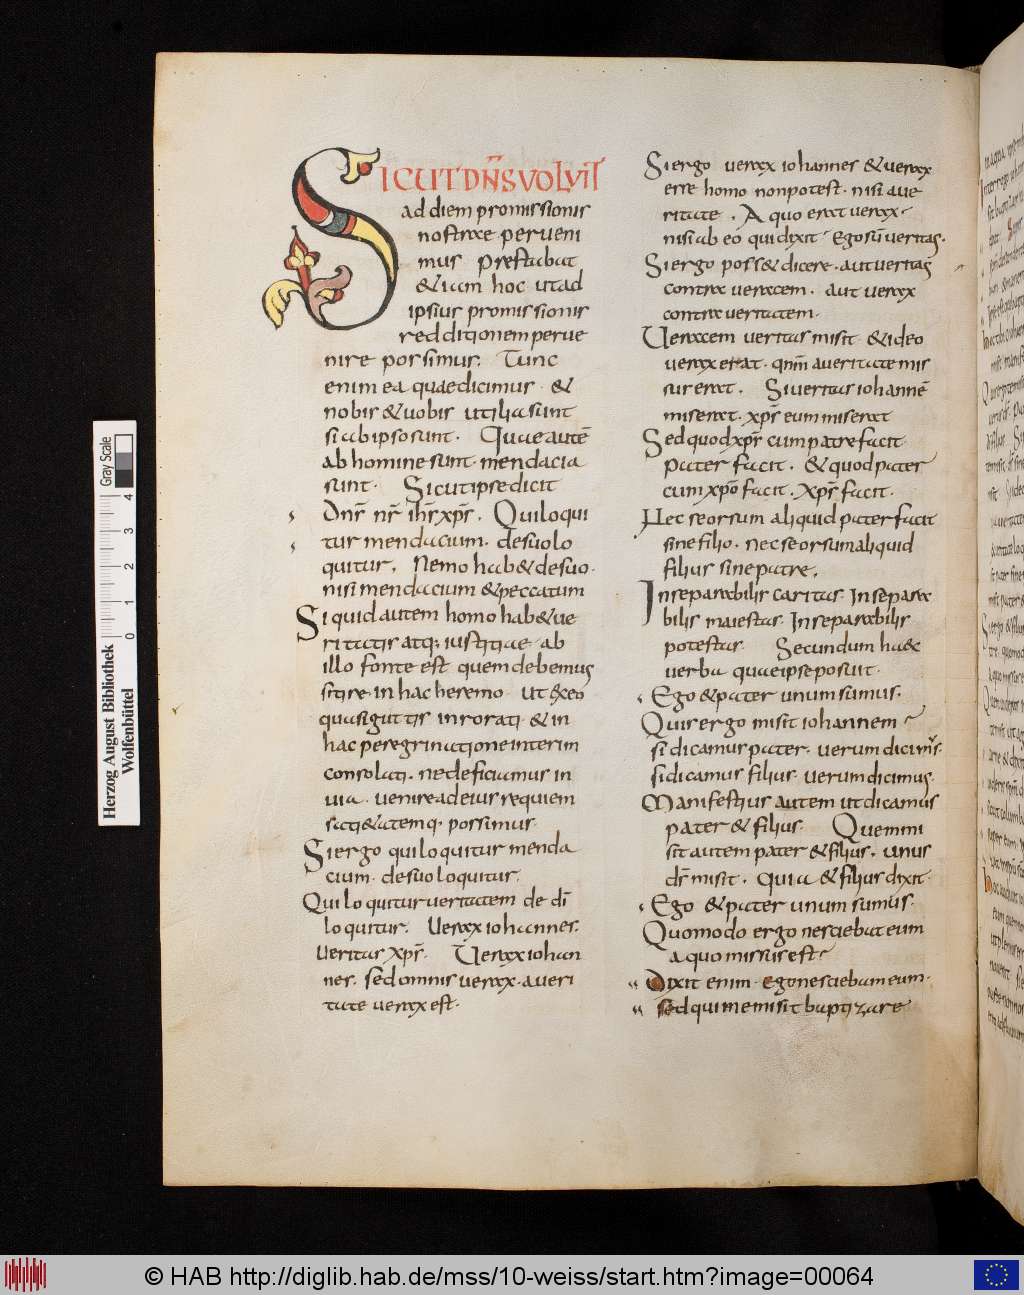 SICUT DN̄S VOLVIT
ad diem promissionis
nostrae perveni
mus Prestabat
& iam hoc ut ad
ipsius promissionis
redditionem perve
nire possimus. Tunc
enim ea quae dicimus & 
nobis & vobis utilia sunt
si ab ipso sunt. Quae autē
ab homine sunt. mendacia
sunt. Sicut ipse dicit
Dn̄s n̄r ih̄s xp̄s. Qui loqui
tur mendacium. de suo lo
quitur. Nemo hab& de suo.
nisi mendacium & peccatum
Si quid autem homo hab& ve
ritatis atq; iustitiae. ab
illo fonte est quem debemus
sitire in hac heremo. Ut ex eo
quasi guttis inrorati. & in
hac peregrinatione interim
consolati. ne deficiamus in
via. venire ad eius requiem
satietatemq. possimus.
Si ergo qui loquitur menda
cium. de suo loquitur.
Qui loquitur veritatem de dī
loquitur. Verax iohannes.
Veritas xp̄s. Verax iohan
nes. sed omnis verax. a veri
tate verax est.
Si ergo verax iohannes & verax
esse homo non potest. nisi a ve
ritate. A quo erat verax
nisi ab eo qui dixit Ego sū veritas.
Si ergo poss& dicere. aut veritas
contra veracem. aut verax
contra veritatem.
Veracem veritas misit & ideo
verax erat. qnm̄ a veritate mis
sus erat. Si veritas iohannē
miserat. xp̄s eum miserat
Sed quod xp̄s cum patre facit
pater facit. & quod pater
cum xp̄o facit. xp̄s facit.
Nec seorsum aliquid pater facit
sine filio. nec seorsum aliquid
filius sine patre.
Inseparabilis caritas. Insepara
bilis maiestas. Inseparabilis
potestas. Secundum haec
verba quae ipse posuit.
Ego & pater unum sumus.
Quis ergo misit iohannem
si dicamus pater. verum dicim's.
si dicamus filius. verum dicimus.
Manifestius autem ut dicamus
pater & filius. Quem mi
sit autem pater & filius. unus
ds̄ misit. Quia & filius dixit.
Ego & pater unum sumus.
Quomodo ergo nesciebat eum
a quo missus est
Dixit enim. ego nesciebam eum.
sed qui me misit baptizare
Herzog August Bibliothek
Wolfenbüttel
Gray Scale
0 1 2 3 4
© HAB http://diglib.hab.de/mss/10-weiss/start.htm?image=00064